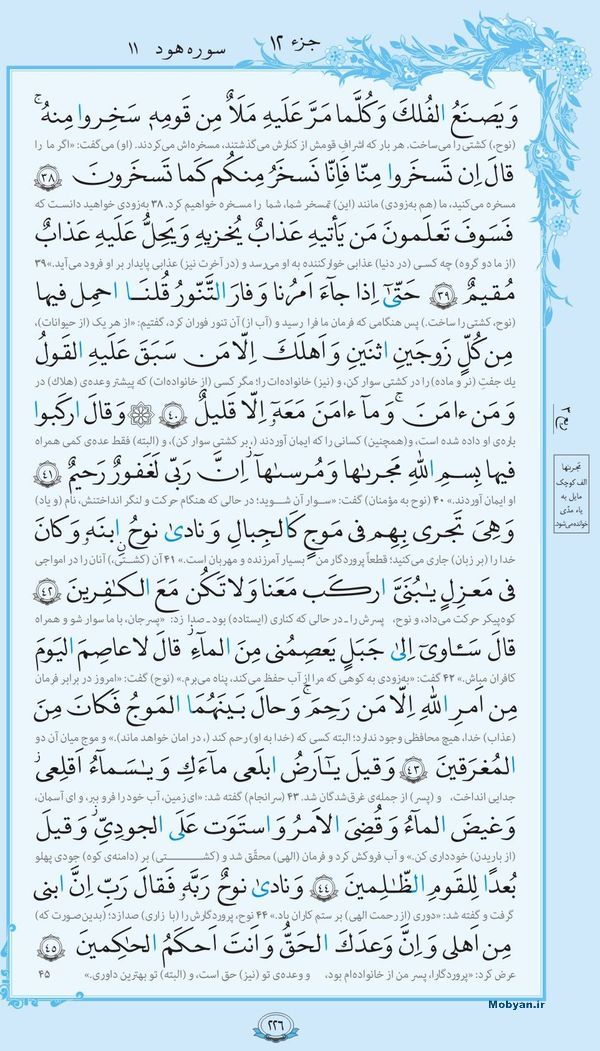 جزء ۱۲
سوره هود ۱۱
وَ يَصنَعُ الفُلكَ وَ كُلَّما مَرَّ عَلَيهِ مَلَأٌ مِن قَومِهٖ سَخِروا مِنهُ ۚ
(نوح،) کشتی را می‌ساخت. هر بار که اشراف قومش از کنارش می‌گذشتند، مسخره‌اش می‌کردند. (او) می‌گفت: «اگر ما را
قالَ اِن تَسخَروا مِنّا فَاِنّا نَسخَرُ مِنكُم كَما تَسخَرونَ ﴿۳۸﴾
مسخره می‌کنید، ما (هم به‌زودی) مانند (این) تمسخر شما، شما را مسخره خواهیم کرد. ۳۸ به‌زودی خواهید دانست که
فَسَوفَ تَعلَمونَ مَن يَأتيهِ عَذابٌ يُخزيهِ وَ يَحِلُّ عَلَيهِ عَذابٌ
(از ما دو گروه) چه کسی (در دنیا) عذابی خوارکننده به او می‌رسد و (در آخرت نیز) عذابی پایدار بر او فرود می‌آید.» ۳۹
مُقيمٌ ﴿۳۹﴾ حَتّىٰٓ اِذا جآءَ اَمرُنا وَ فارَ التَّنّورُ قُلنَا احمِل فيها
(نوح، کشتی را ساخت.) پس هنگامی که فرمان ما فرا رسید و (آب از) آن تنور فوران کرد، گفتیم: «از هر یک (از حیوانات)،
مِن كُلٍّ زَوجَينِ اثنَينِ وَ اَهلَكَ اِلّا مَن سَبَقَ عَلَيهِ القَولُ
یک جفت (نر و ماده) را در کشتی سوار کن، و (نیز) خانواده‌ات را؛ مگر کسی (از خانواده‌ات) که پیشتر وعده‌ی (هلاک) در
وَ مَن ءامَنَ ۚ وَ مآ ءامَنَ مَعَهٗٓ اِلّا قَليلٌ ﴿۴۰﴾ وَ قالَ اركَبوا
باره‌ی او داده شده است، و(همچنین) کسانی را که ایمان آوردند (، بر کشتی سوار کن)، و (البته) فقط عده‌ی کمی همراه
فيها بِسمِ اللّٰهِ مَجر۪ىٰها وَ مُرسىٰهآ ۚ اِنَّ رَبّي لَغَفورٌ رَحيمٌ ﴿۴۱﴾
او ایمان آوردند.» ۴۰ (نوح به مؤمنان) گفت: «سوار آن شوید؛ در حالی که هنگام حرکت و لنگر انداختنش، نام (و یاد)
وَ هِيَ تَجري بِهِم في مَوجٍ كَالجِبالِ وَ نادىٰ نوحٌ ابنَهٗ وَ كانَ
خدا را (بر زبان) جاری می‌کنید؛ قطعاً پروردگار من بسیار آمرزنده و مهربان است.» ۴۱ آن (کشتی)، آنان را در امواجی
في مَعزِلٍ يٰبُنَيَّ اركَب مَعَنا وَ لا تَكُن مَعَ الكٰفِرينَ ﴿۴۲﴾
کوه‌پیکر حرکت می‌داد، و نوح، پسرش را ـ در حالی که کناری (ایستاده) بود ـ صدا زد: «پسرجان، با ما سوار شو و همراه
قالَ سَـٔاوي اِلىٰ جَبَلٍ يَعصِمُني مِنَ المآءِ ۚ قالَ لا عاصِمَ اليَومَ
کافران مباش.» ۴۲ گفت: «به‌زودی به کوهی که مرا از آب حفظ می‌کند، پناه می‌برم.» (نوح) گفت: «امروز در برابر فرمان
مِن اَمرِ اللّٰهِ اِلّا مَن رَحِمَ ۚ وَ حالَ بَينَهُمَا المَوجُ فَكانَ مِنَ
(عذاب) خدا، هیچ محافظی وجود ندارد؛ البته کسی که (خدا به او) رحم کند (، در امان خواهد ماند).» و موج میان آن دو
المُغرَقينَ ﴿۴۳﴾ وَ قيلَ يٰٓاَرضُ ابلَعي مآءَكِ وَ يٰسَمآءُ اَقلِعي
جدایی انداخت، و (پسر) از جمله‌ی غرق‌شدگان شد. ۴۳ (سرانجام) گفته شد: «ای زمین، آب خود را فرو ببر، و ای آسمان،
وَ غيضَ المآءُ وَ قُضِيَ الاَمرُ وَ استَوَت عَلَى الجودِيِّ ۖ وَ قيلَ
(از باریدن) خودداری کن.» و آب فروکش کرد و فرمان (الهی) محقّق شد و (کشتی) بر (دامنه‌ی کوه) جودی پهلو
بُعدًا لِلقَومِ الظّٰلِمينَ ﴿۴۴﴾ وَ نادىٰ نوحٌ رَبَّهٗ فَقالَ رَبِّ اِنَّ ابني
گرفت و گفته شد: «دوری (از رحمت الهی) بر ستم کاران باد.» ۴۴ نوح، پروردگارش را (با زاری) صدا زد؛ (بدین‌صورت که)
مِن اَهلي وَ اِنَّ وَعدَكَ الحَقُّ وَ اَنتَ اَحكَمُ الحٰكِمينَ ﴿۴۵﴾
عرض کرد: «پروردگارا، پسر من از خانواده‌ام بود، و وعده‌ی تو (نیز) حق است، و (البته) تو بهترین داوری.» ۴۵
مَجرىٰها
الف کوچک
مایل به
یاء مدّی
خوانده می‌شود.
۲۲۶
Mobyan.ir